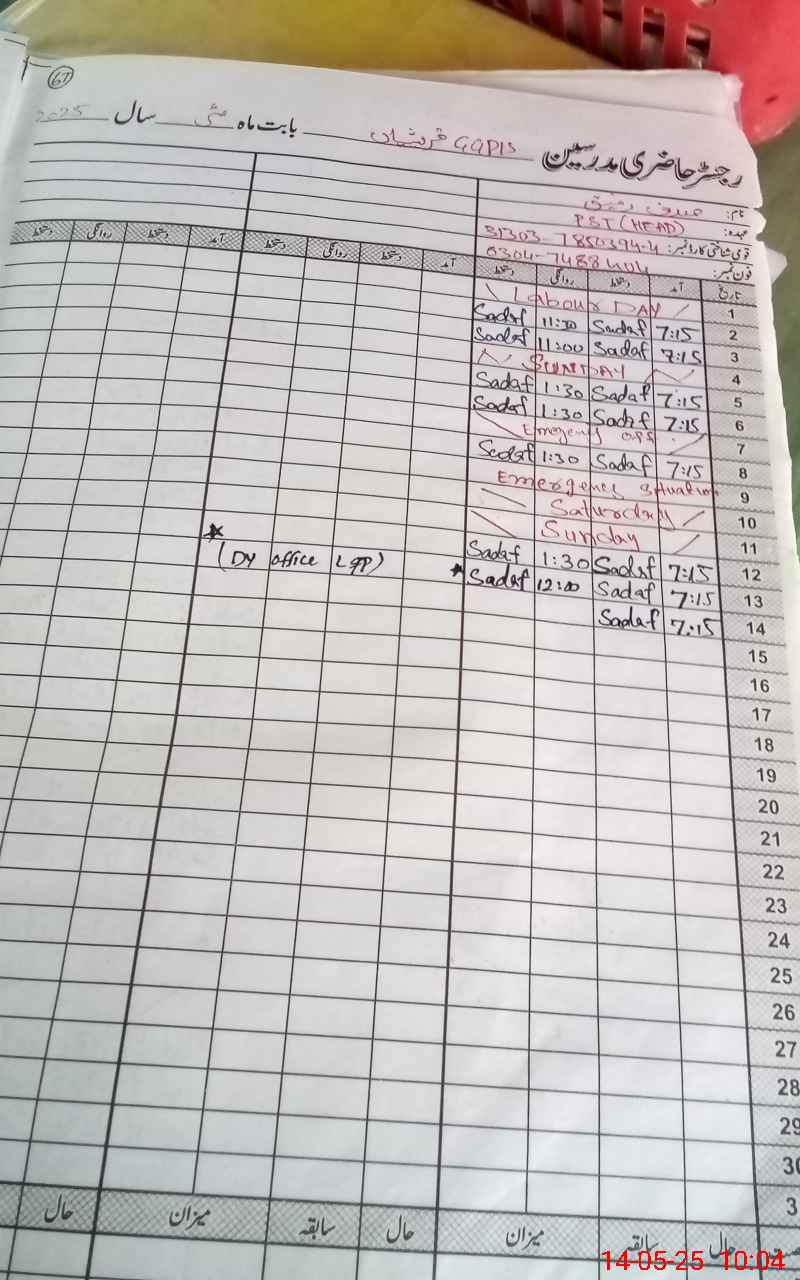 67
رجسٹر حاضری مدرسین GGPIS قریشیاں بابت ماہ مئی سال 2025
نام: صدف رفیق
عہدہ: PST (HEAD)
قومی شناختی کارڈ نمبر: 31303-7850394-4
فون نمبر: 0304-7488404
تاریخ آمد دستخط روانگی دستخط آمد دستخط روانگی دستخط آمد دستخط روانگی دستخط
1 Labour DAY
2 7:15 Sadaf 11:30 Sadaf
3 7:15 Sadaf 11:00 Sadaf
4 SUNDAY
5 7:15 Sadaf 1:30 Sadaf
6 7:15 Sadaf 1:30 Sadaf
7 Emegency
8 7:15 Sadaf 1:30 Sadaf
9 Emergency situation
10 Saturday
11 Sunday
12 7:15 Sadaf 1:30 Sadaf
13 7:15 Sadaf 12:00 Sadaf * * (Dy office Lqp)
14 7:15 Sadaf
15
16
17
18
19
20
21
22
23
24
25
26
27
28
29
30
3
حال سابقہ میزان حال سابقہ میزان حال
14-05-25 10:04